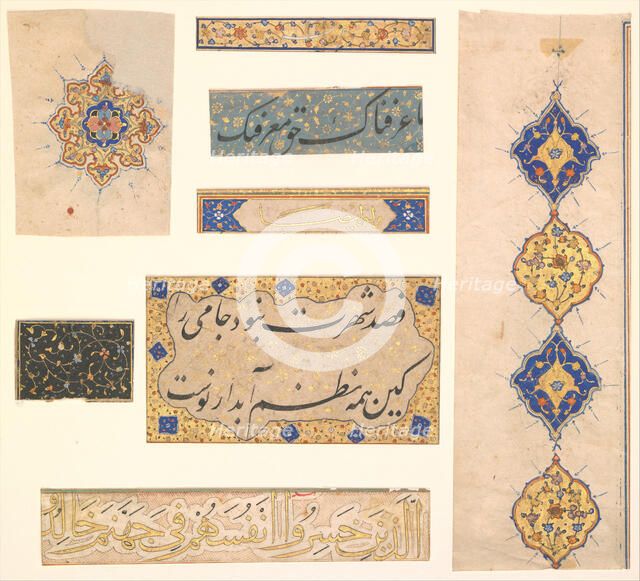 ما عرفناک حق معرفتک
قصد شهرت نبود جامی را
کین همه نظم آبدار نوشت
الذین خسروا انفسهم فی جهنم خالدو
Heritage
Heritage
Heritage
Heritage
Heritage
Heritage